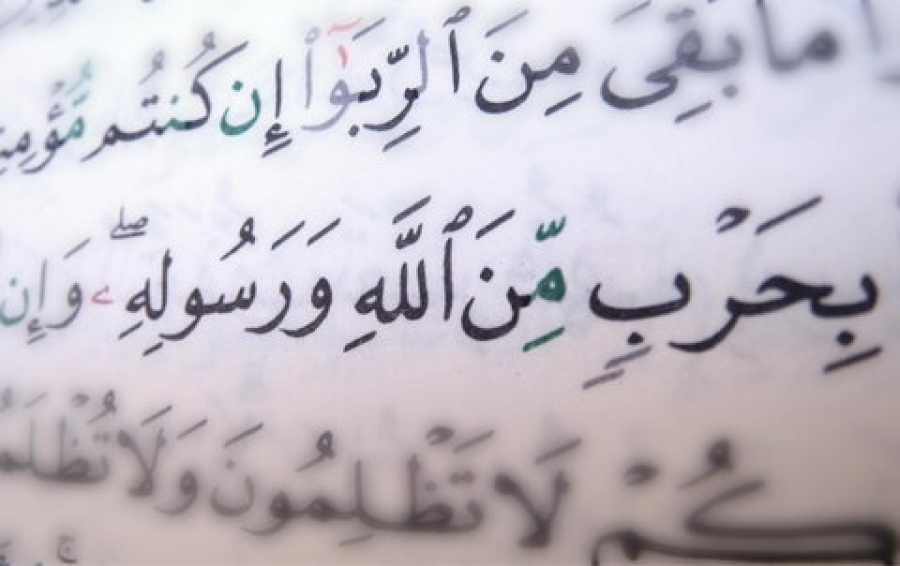 مَا بَقِىَ مِنَ ٱلرِّبَوٰٓا۟ إِن كُنتُم
بِحَرْبٍ مِّنَ ٱللَّهِ وَرَسُولِهِۦ ۖ وَإِن
كُمْ لَا تَظْلِمُونَ وَلَا